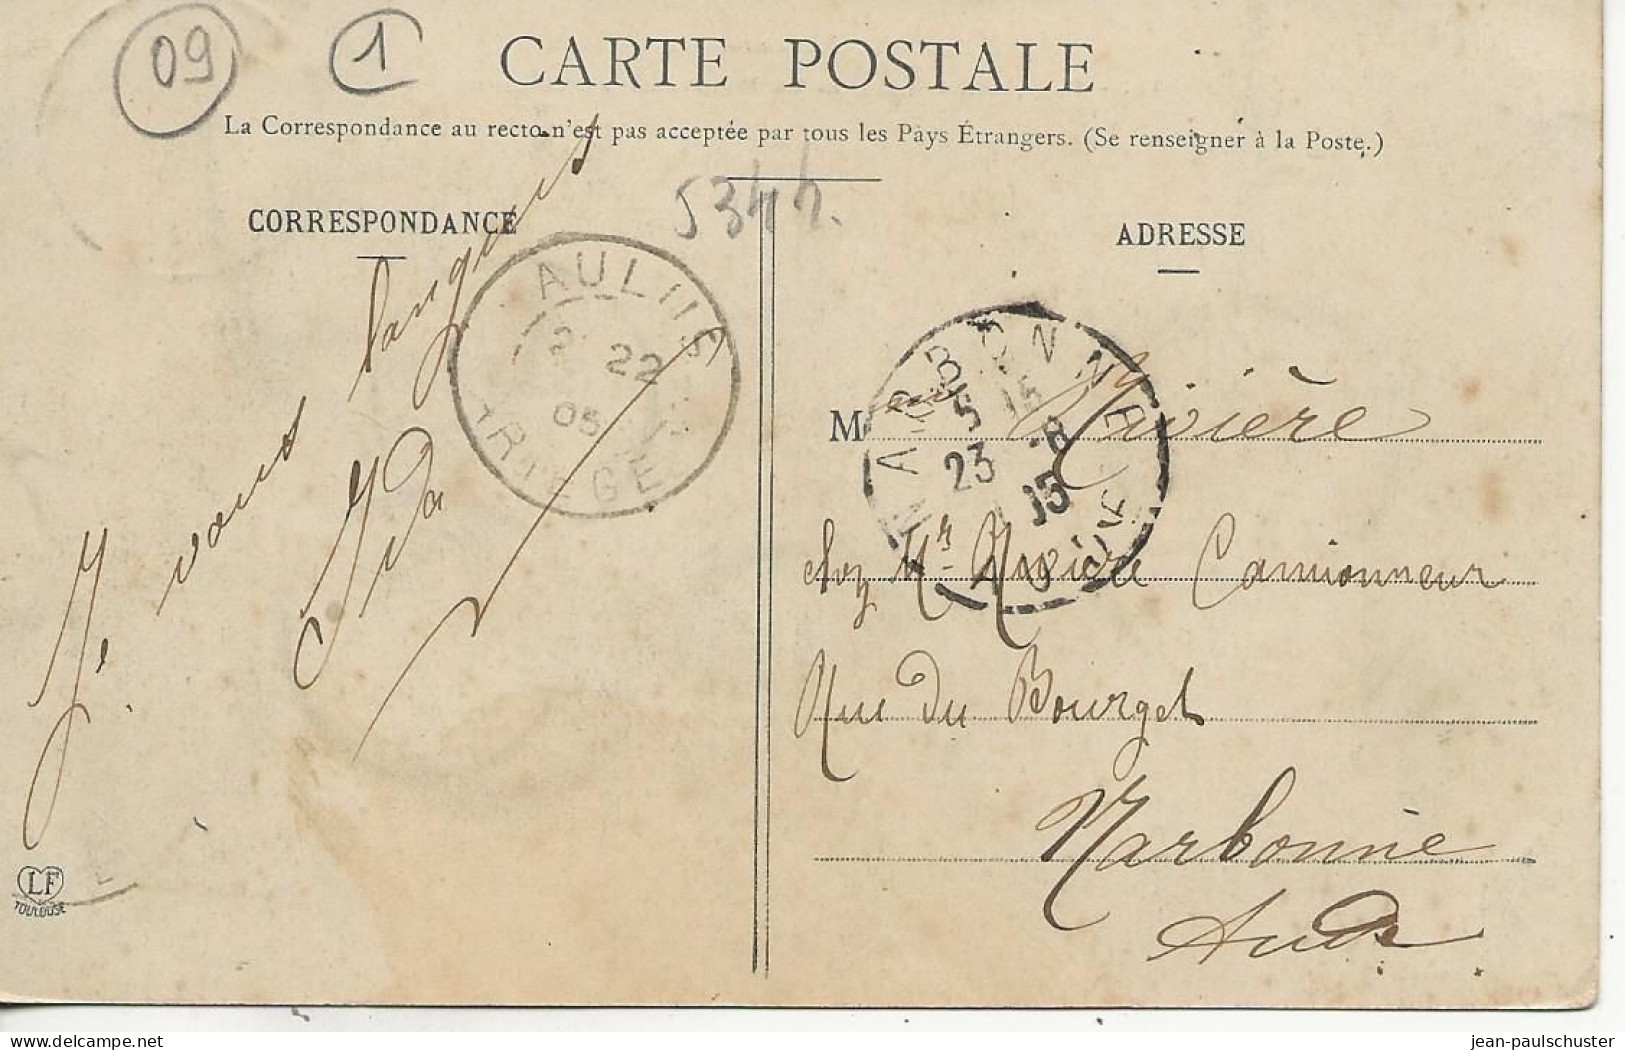 09
1
CARTE POSTALE
La Correspondance au recto n'est pas acceptée par tous les Pays Étrangers. (Se renseigner à la Poste.)
534
CORRESPONDANCE
ADRESSE
Je vous
Ida
AULUS
22
05
ARIEGE
NARBONNE
5 15
23 -8
05
AUDE
M Rivière
chez Mr Rivière Camionneur
Rue du Bourget
Narbonne
Aude
LF
TOULOUSE
delcampe.net
jean-paulschuster